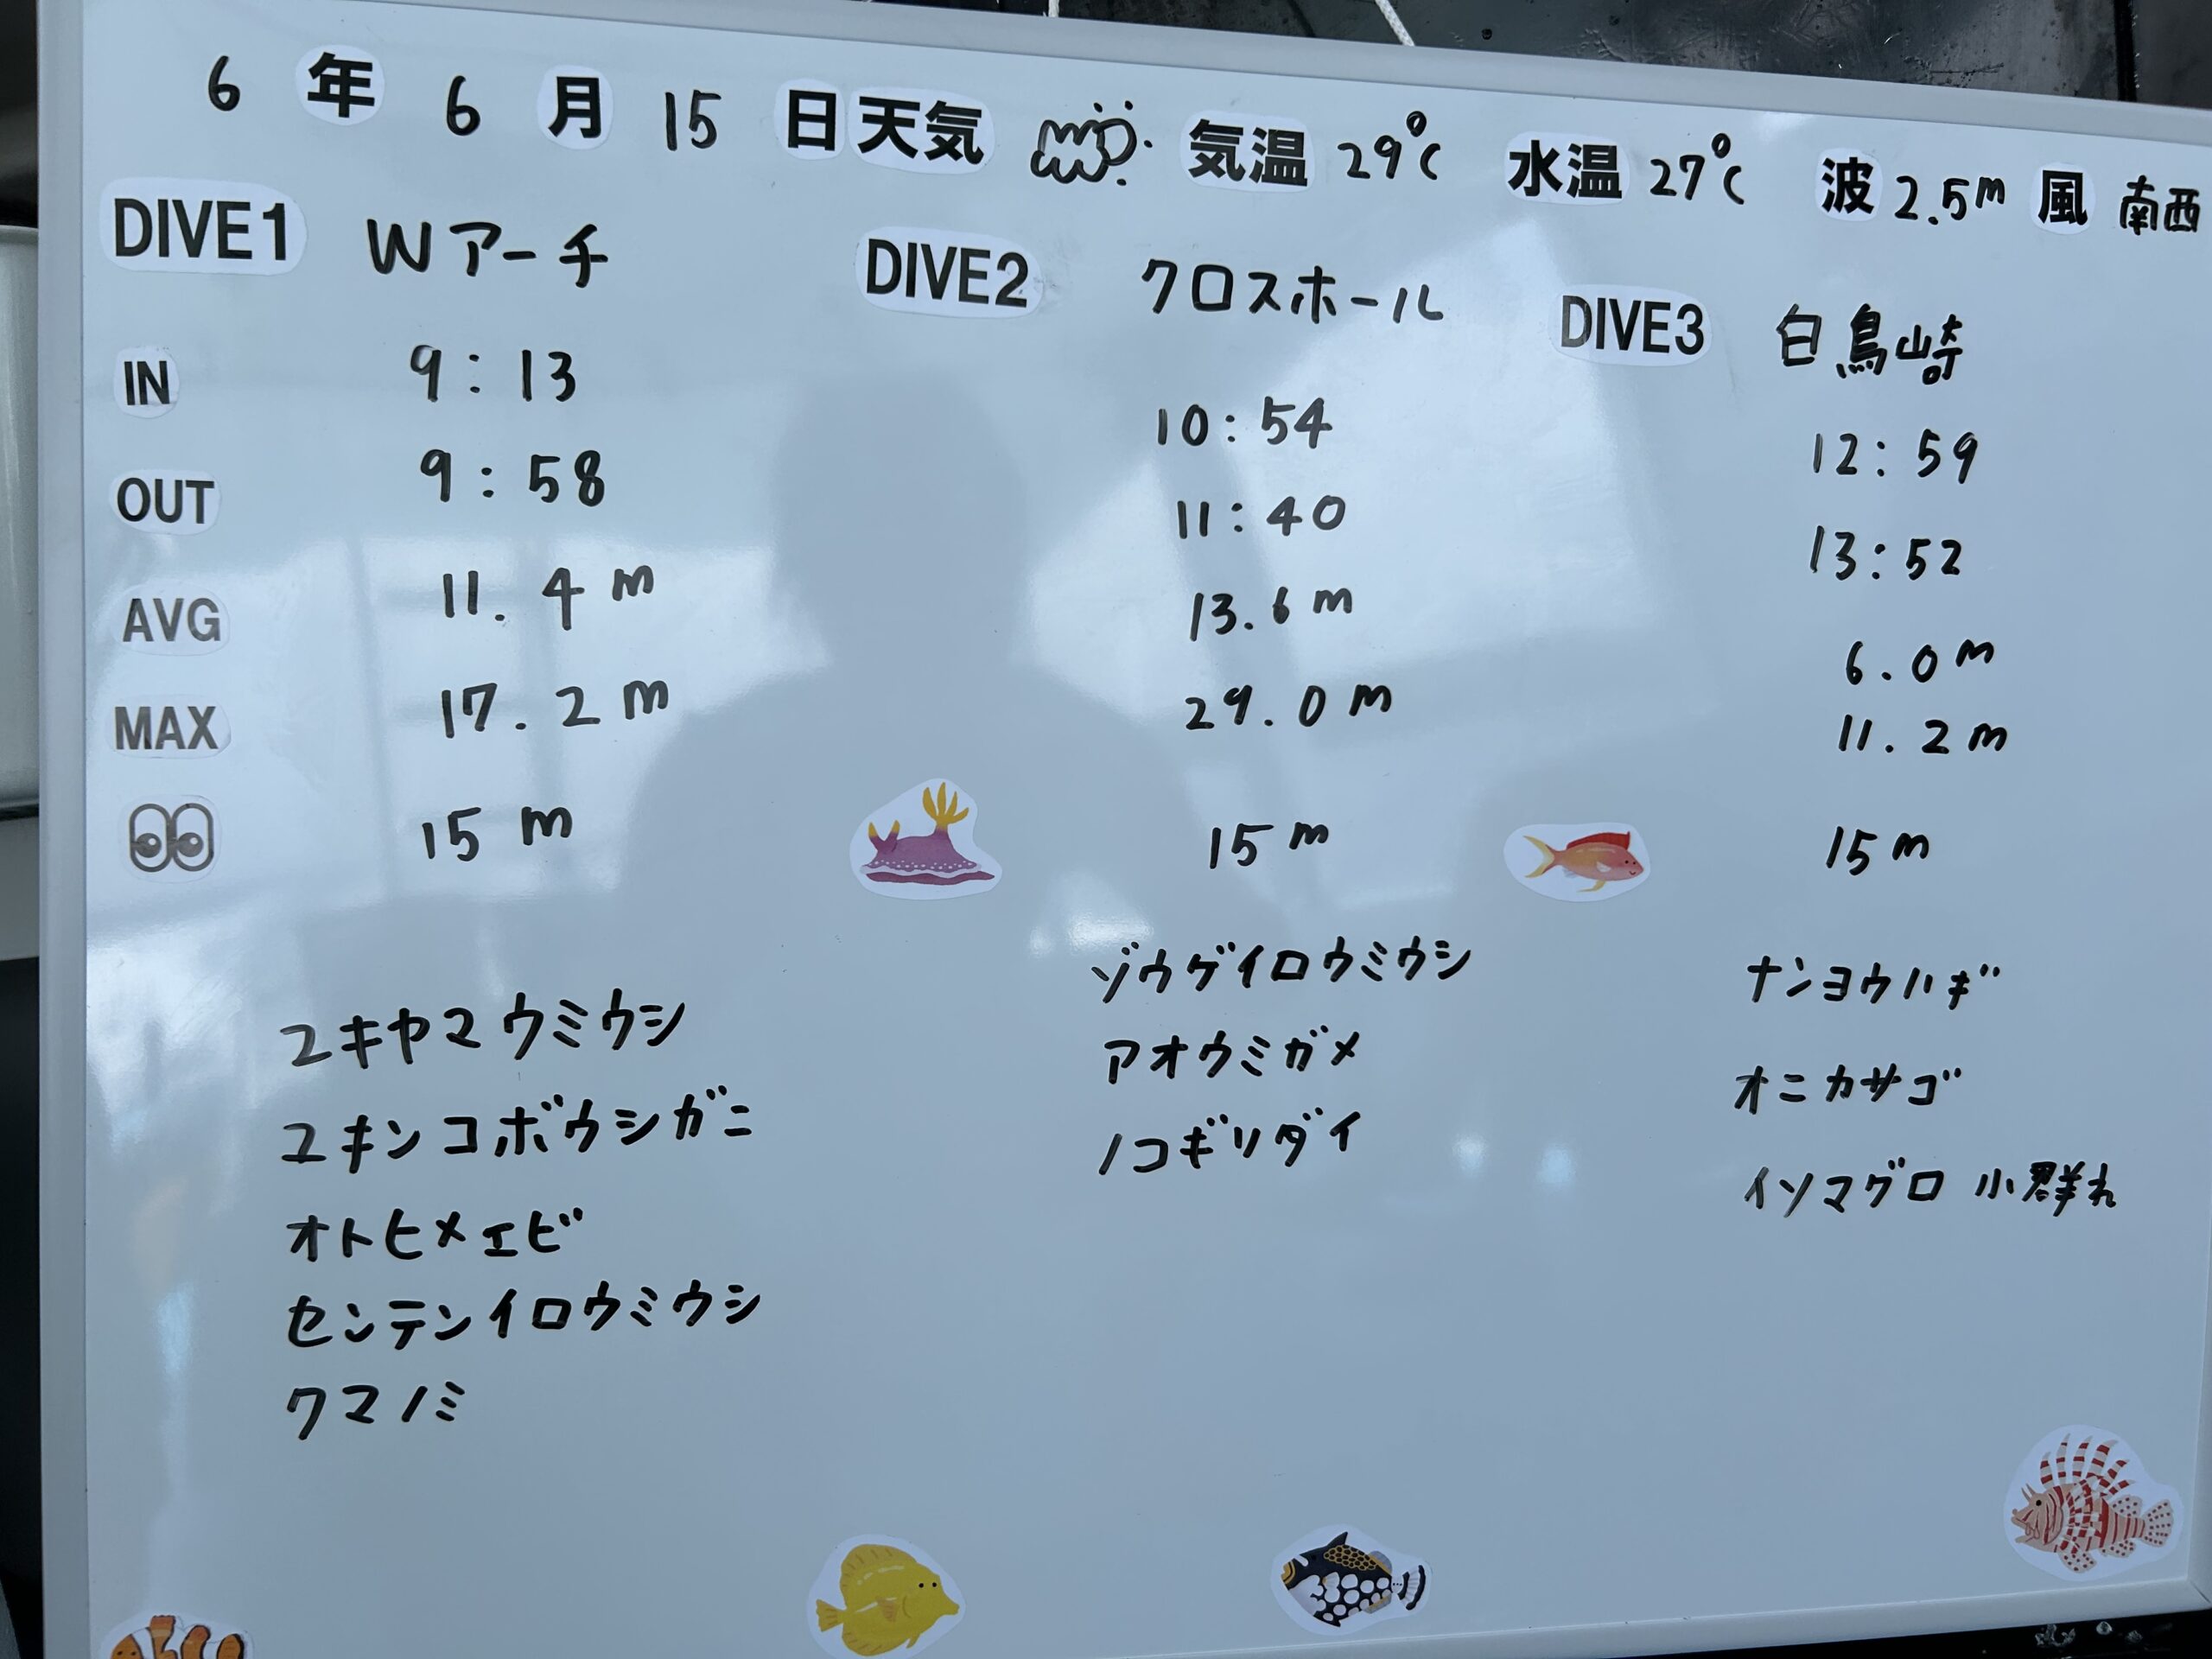 6年6月15日 天気 気温 29℃ 水温 27℃ 波 2.5m 風 南西
DIVE1 Wアーチ
IN 9:13
OUT 9:58
AVG 11.4m
MAX 17.2m
15m
ユキヤマウミウシ
ユキンコボウシガニ
オトヒメエビ
センテンイロウミウシ
クマノミ
DIVE2 クロスホール
10:54
11:40
13.6m
29.0m
15m
ゾウゲイロウミウシ
アオウミガメ
ノコギリダイ
DIVE3 白鳥崎
12:59
13:52
6.0m
11.2m
15m
ナンヨウハギ
オニカサゴ
イソマグロ 小群れ